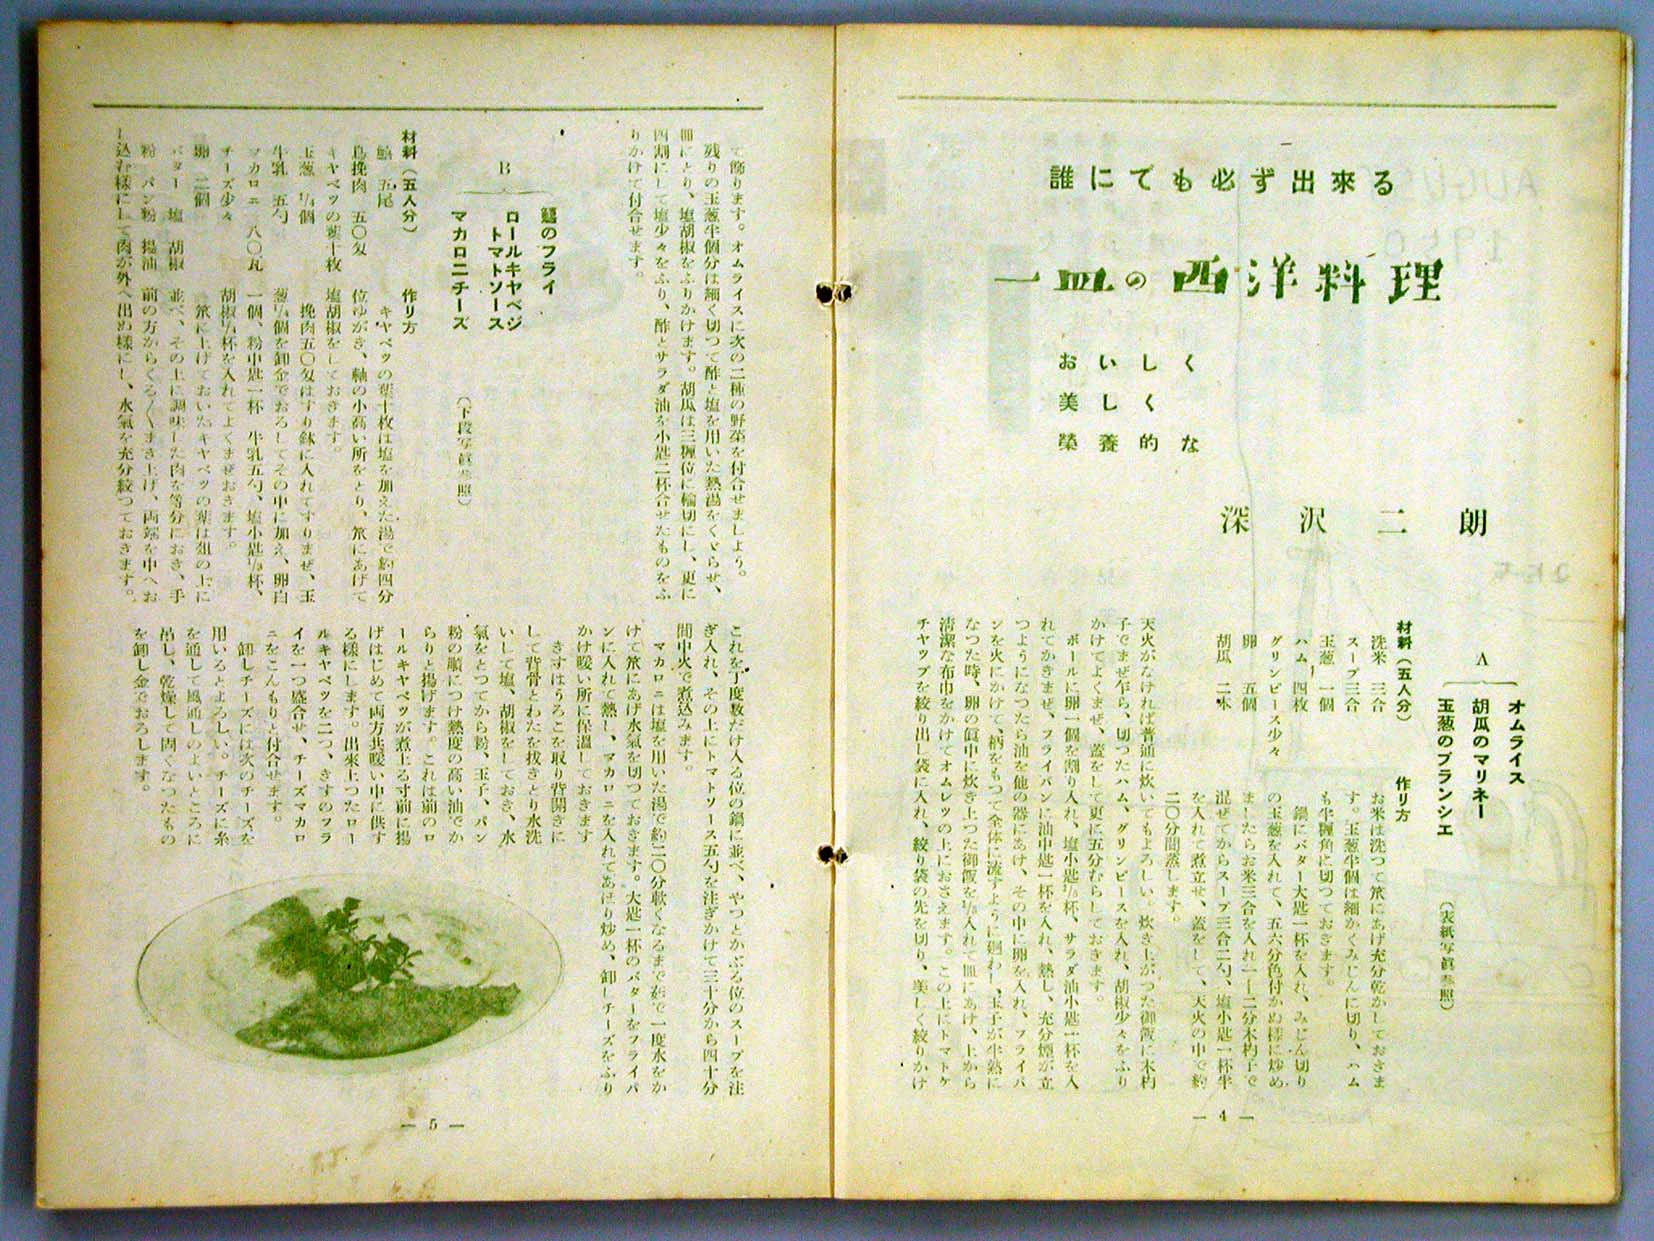 誰にでも必ず出來る
一皿の西洋料理
おいしく
美しく
榮養的な
深沢二朗
A
オムライス
胡瓜のマリネー
玉葱のブランシエ
(表紙写眞参照)
材料(五人分)
洗米 三合
スープ三合
玉葱 一個
ハム 四枚
グリンピース少々
卵 五個
胡瓜 二本
作り方
お米は洗つて笊にあげ充分乾かしておきま
す。玉葱半個は細かくみじんに切り、ハム
も半糎角に切つておきます。
鍋にバター大匙一杯を入れ、みじん切り
の玉葱を入れて、五六分色付かぬ様に炒め
ましたらお米三合を入れ一ー二分木杓子で
混ぜてからスープ三合二勺、塩小匙一杯半
を入れて煮立せ、蓋をして、天火の中で約
二〇分間蒸します。
天火がなければ普通に炊いてもよろしい。炊き上がつた御飯に木杓
子でまぜ乍ら、切つたハム、グリンピースを入れ、胡椒少々をふり
かけてよくまぜ、蓋をして更に五分むらしておきます。
ボールに卵一個を割り入れ、塩小匙⅛杯、サラダ油小匙一杯を入
れてかきまぜ、フライパンに油中匙一杯を入れ、熱し、充分煙が立
つようになつたら油を他の器にあけ、その中に卵を入れ、フライパ
ンを火にかけて、柄をもつて全体に流すように廻わし、玉子が半熟に
なつた時、卵の眞中に炊き上つた御飯を⅕入れて皿にあけ、上から
淸潔な布巾をかけてオムレツの上におさえます。この上にトマトケ
チヤツプを絞り出し袋に入れ、絞り袋の先を切り、美しく絞りかけ
— 4 —
て飾ります。オムライスに次の二種の野菜を付合せましよう。
残りの玉葱半個分は細く切つて酢と塩を用いた熱湯をくゞらせ、
皿にとり、塩胡椒をふりかけます。胡瓜は三糎位に輪切にし、更に
四割にして塩少々をふり、酢とサラダ油を小匙二杯合せたものをふ
りかけて付合せます。
B
鱚のフライ
ロールキヤベジ
トマトソース
マカロニチーズ
(下段写眞参照)
材料(五人分)
鱚 五尾
鳥挽肉 五〇匁
キヤベツの葉十枚
玉葱 ¼個
牛乳 五勺
マカロニ 八〇瓦
チーズ少々
卵 二個
バター 塩 胡椒
粉 パン粉 揚油
作り方
キヤベツの葉十枚は塩を加えた湯で約四分
位ゆがき、軸の小高い所をとり、笊にあげて
塩胡椒をしておきます。
挽肉五〇匁はすり鉢に入れてすりまぜ、玉
葱¼個を卸金でおろしてその中に加え、卵白
一個、粉中匙一杯 牛乳五勺、塩小匙⅓杯、
胡椒¼杯を入れてよくまぜおきます。
笊に上げておいたキヤベツの葉は俎の上に
並べ、その上に調味した肉を等分におき、手
前の方からくる〱まき上げ、両端を中へお
し込む様にして肉が外へ出ぬ様にし、水氣を充分絞つておきます。
これを丁度數だけ入る位の鍋に並べ、やつとかぶる位のスープを注
ぎ入れ、その上にトマトソース五勺を注ぎかけて三十分から四十分
間中火で煮込みます。
マカロニは塩を用いた湯で約二〇分軟くなるまで茹で一度水をか
けて笊にあげ水氣を切つておきます。大匙一杯のバターをフライパ
ンに入れて熱し、マカロニを入れてあぼり炒め、卸しチーズをふり
かけ暖い所に保温しておきます
きすはうろこを取り背開きに
して背骨とわたを拔きとり水洗
いして塩、胡椒をしておき、水
氣をとつてから粉、玉子、パン
粉の順につけ熱度の高い油でか
らりと揚げます。これは前のロ
ールキヤベツが煮上る寸前に揚
げはじめて両方共暖い中に供す
る様にします。出來上つたロー
ルキヤベツを二つ、きすのフラ
イを一つ盛合せ、チーズマカロ
ニをこんもりと付合せます。
卸しチーズには次のチーズを
用いるとよろしい。チーズに糸
を通して風通しのよいところに
吊し、乾燥して固くなつたもの
を卸し金でおろします。
— 5 —